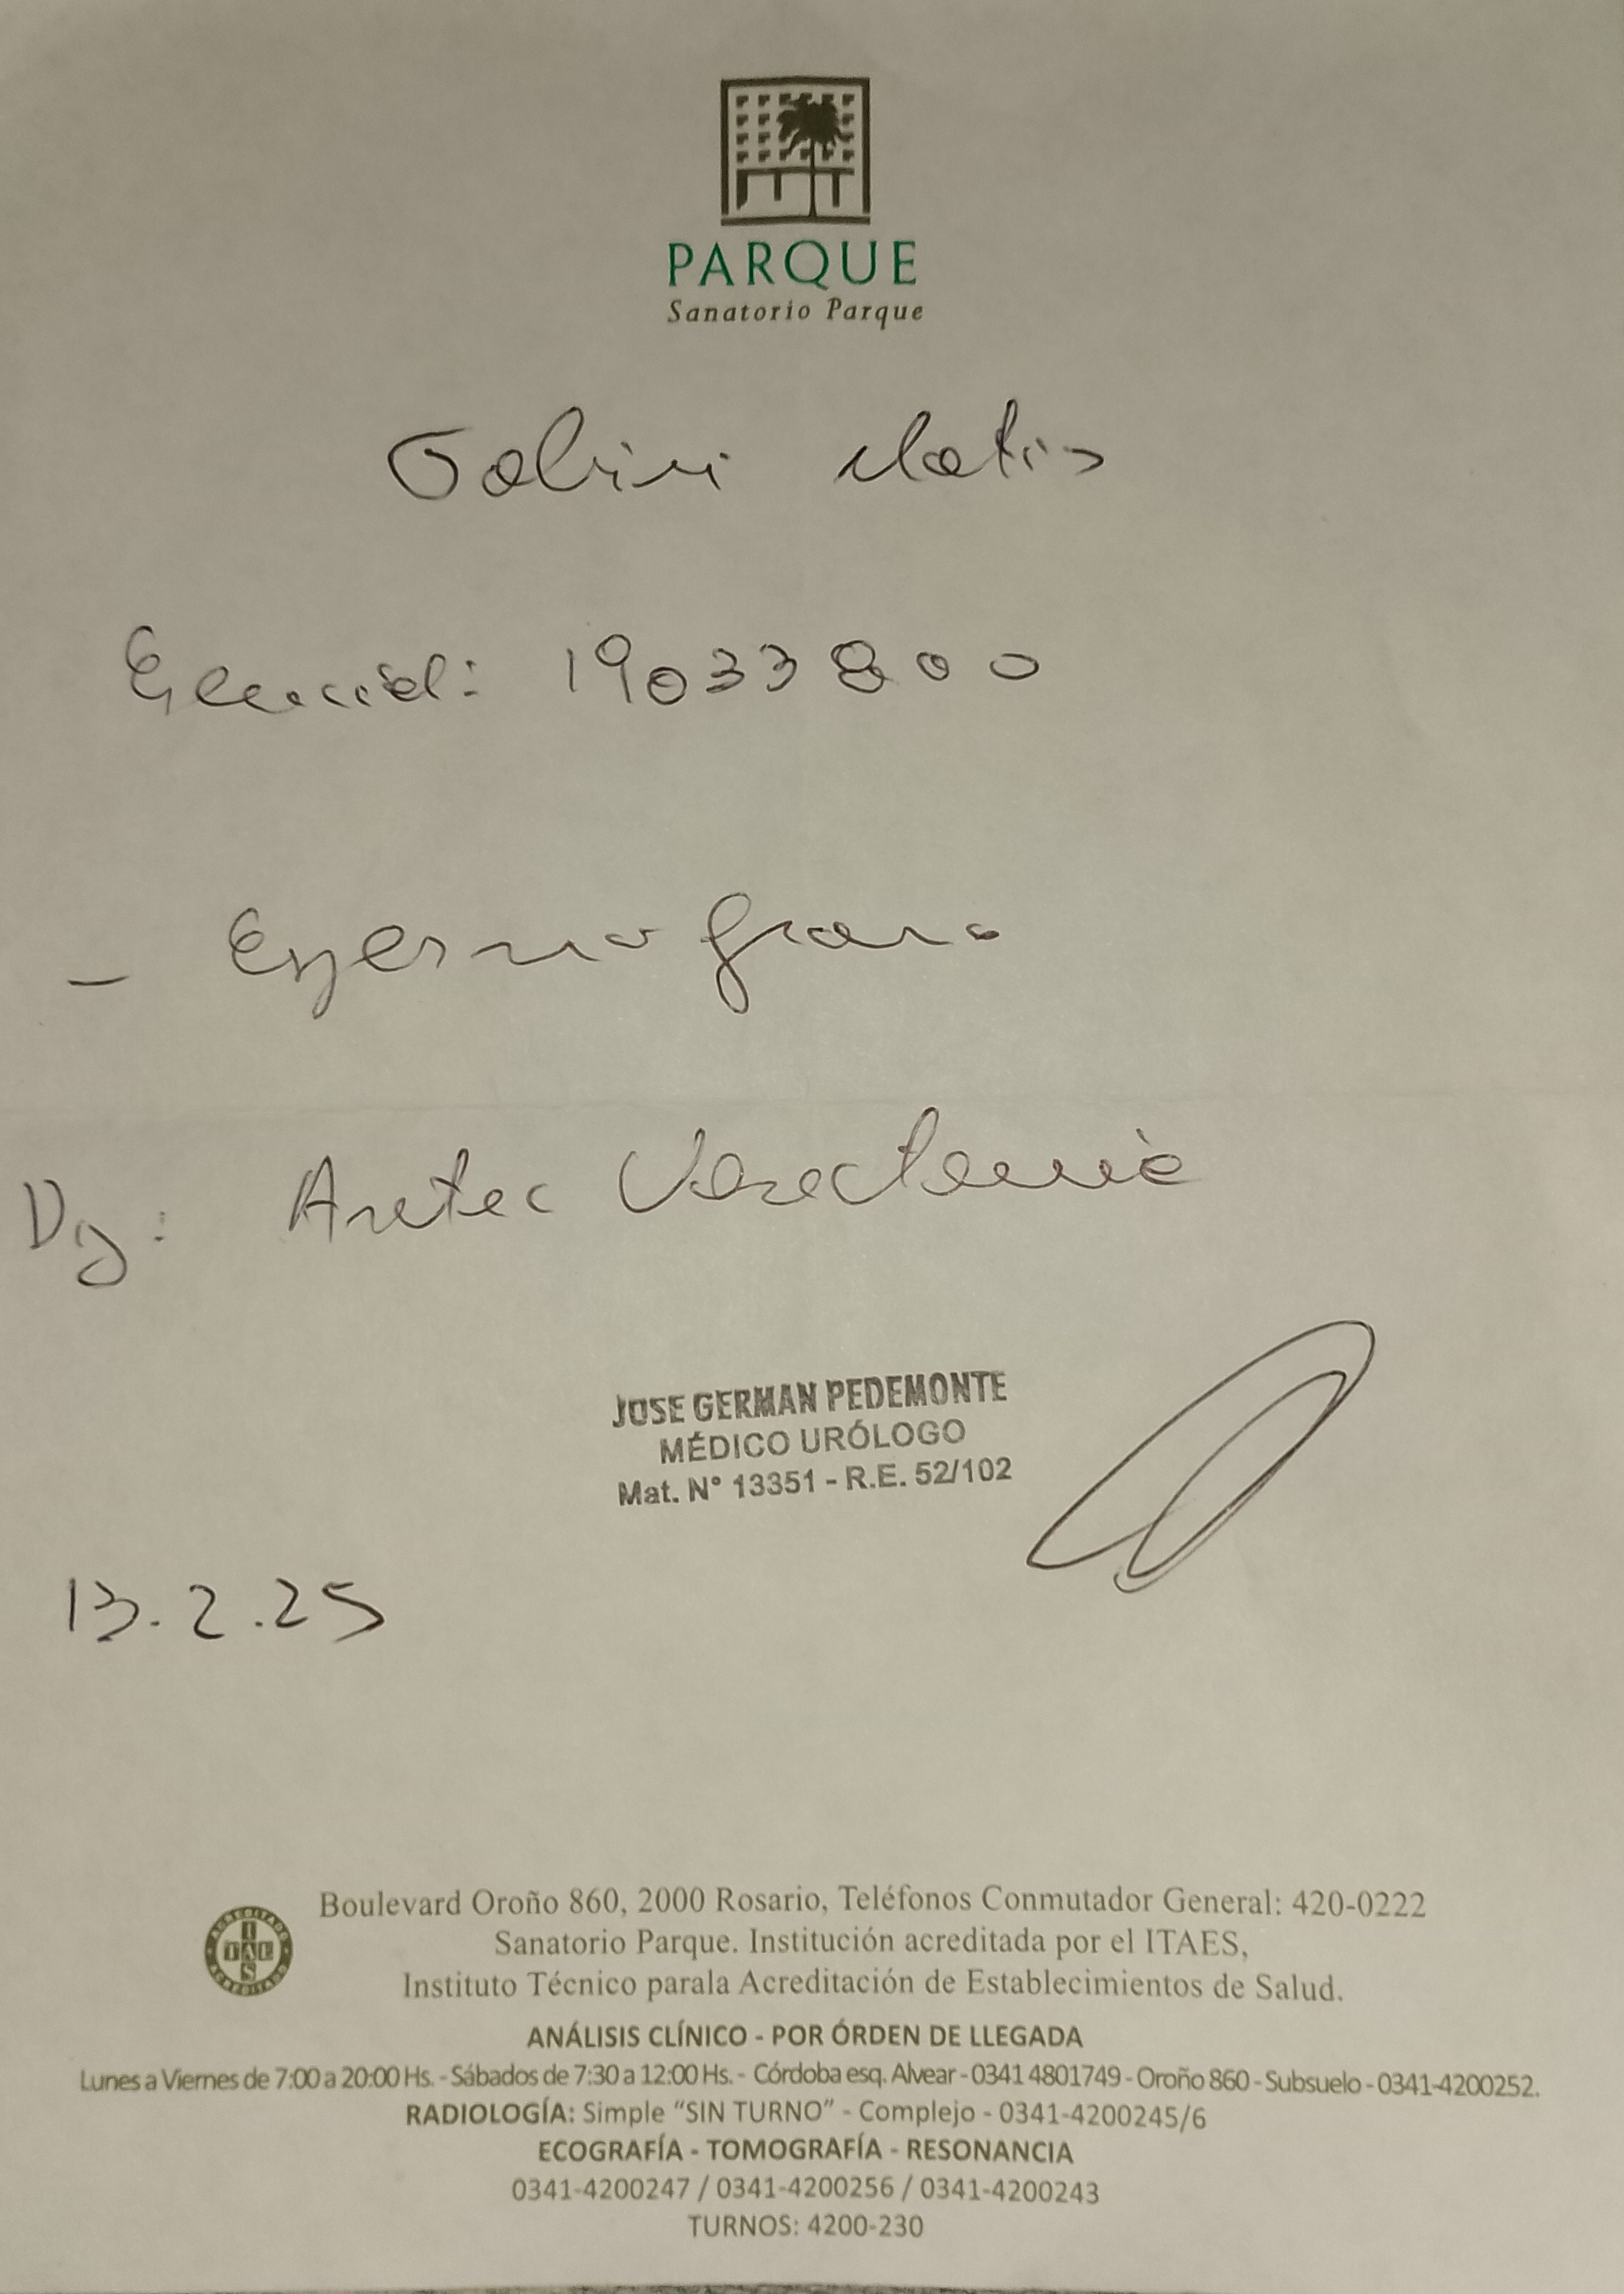 PARQUE
Sanatorio Parque
Matias
Esencial: 19033800
- Espermograma
Dg: Antec Vasectomia
JOSE GERMAN PEDEMONTE
MÉDICO URÓLOGO
Mat. N° 13351 - R.E. 52/102
13.2.25
ACREDITADO
ITAES
ACREDITADO
Boulevard Oroño 860, 2000 Rosario, Teléfonos Conmutador General: 420-0222
Sanatorio Parque. Institución acreditada por el ITAES,
Instituto Técnico parala Acreditación de Establecimientos de Salud.
ANÁLISIS CLÍNICO - POR ÓRDEN DE LLEGADA
Lunes a Viernes de 7:00 a 20:00 Hs. - Sábados de 7:30 a 12:00 Hs. - Córdoba esq. Alvear - 0341 4801749 - Oroño 860 - Subsuelo - 0341-4200252.
RADIOLOGÍA: Simple “SIN TURNO” - Complejo - 0341-4200245/6
ECOGRAFÍA - TOMOGRAFÍA - RESONANCIA
0341-4200247 / 0341-4200256 / 0341-4200243
TURNOS: 4200-230